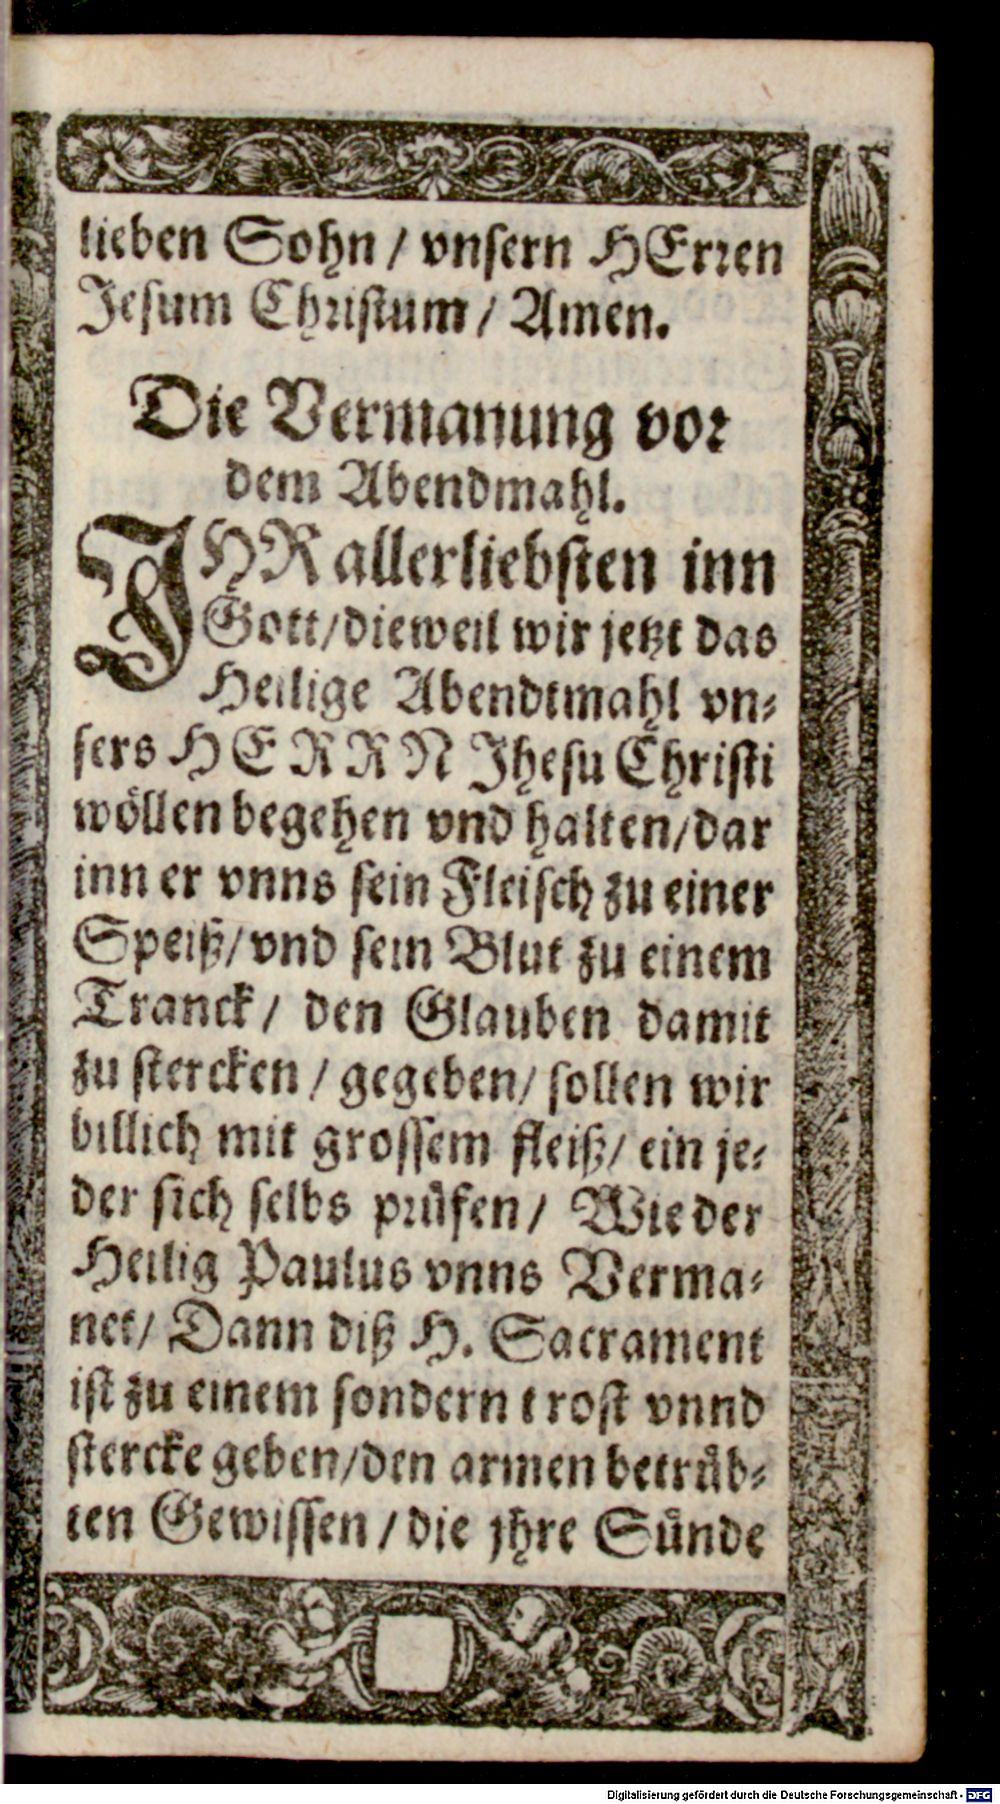 lieben Sohn / vnsern HErren
Jesum Christum / Amen.
Die Vermanung vor
dem Abendmahl.
IHR allerliebsten inn
Gott / dieweil wir jetzt das
Heilige Abendtmahl vn-
sers HERRN Jhesu Christi
wöllen begehen vnd halten / dar
inn er vnns sein Fleisch zu einer
Speiß / vnd sein Blut zu einem
Tranck / den Glauben damit
zu stercken / gegeben / sollen wir
billich mit grossem fleiß / ein je-
der sich selbs prüfen / Wie der
Heilig Paulus vnns Verma-
net / Dann diß H. Sacrament
ist zu einem sondern trost vnnd
stercke geben / den armen betrüb-
ten Gewissen / die jhre Sünde
Digitalisierung gefördert durch die Deutsche Forschungsgemeinschaft - DFG